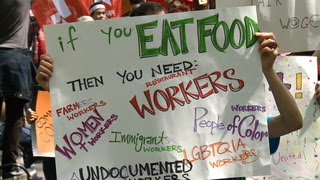 if YOU EAT FOOD
THEN YOU NEED:
RESTAURANT
WORKERS
FARM
WORKERS
WORKERS
WOMEN
WORKERS
Immigrant
WORKERS
People of Color
LGBTQIA
WORKERS
UNDOCUMENTED
WORKERS
United